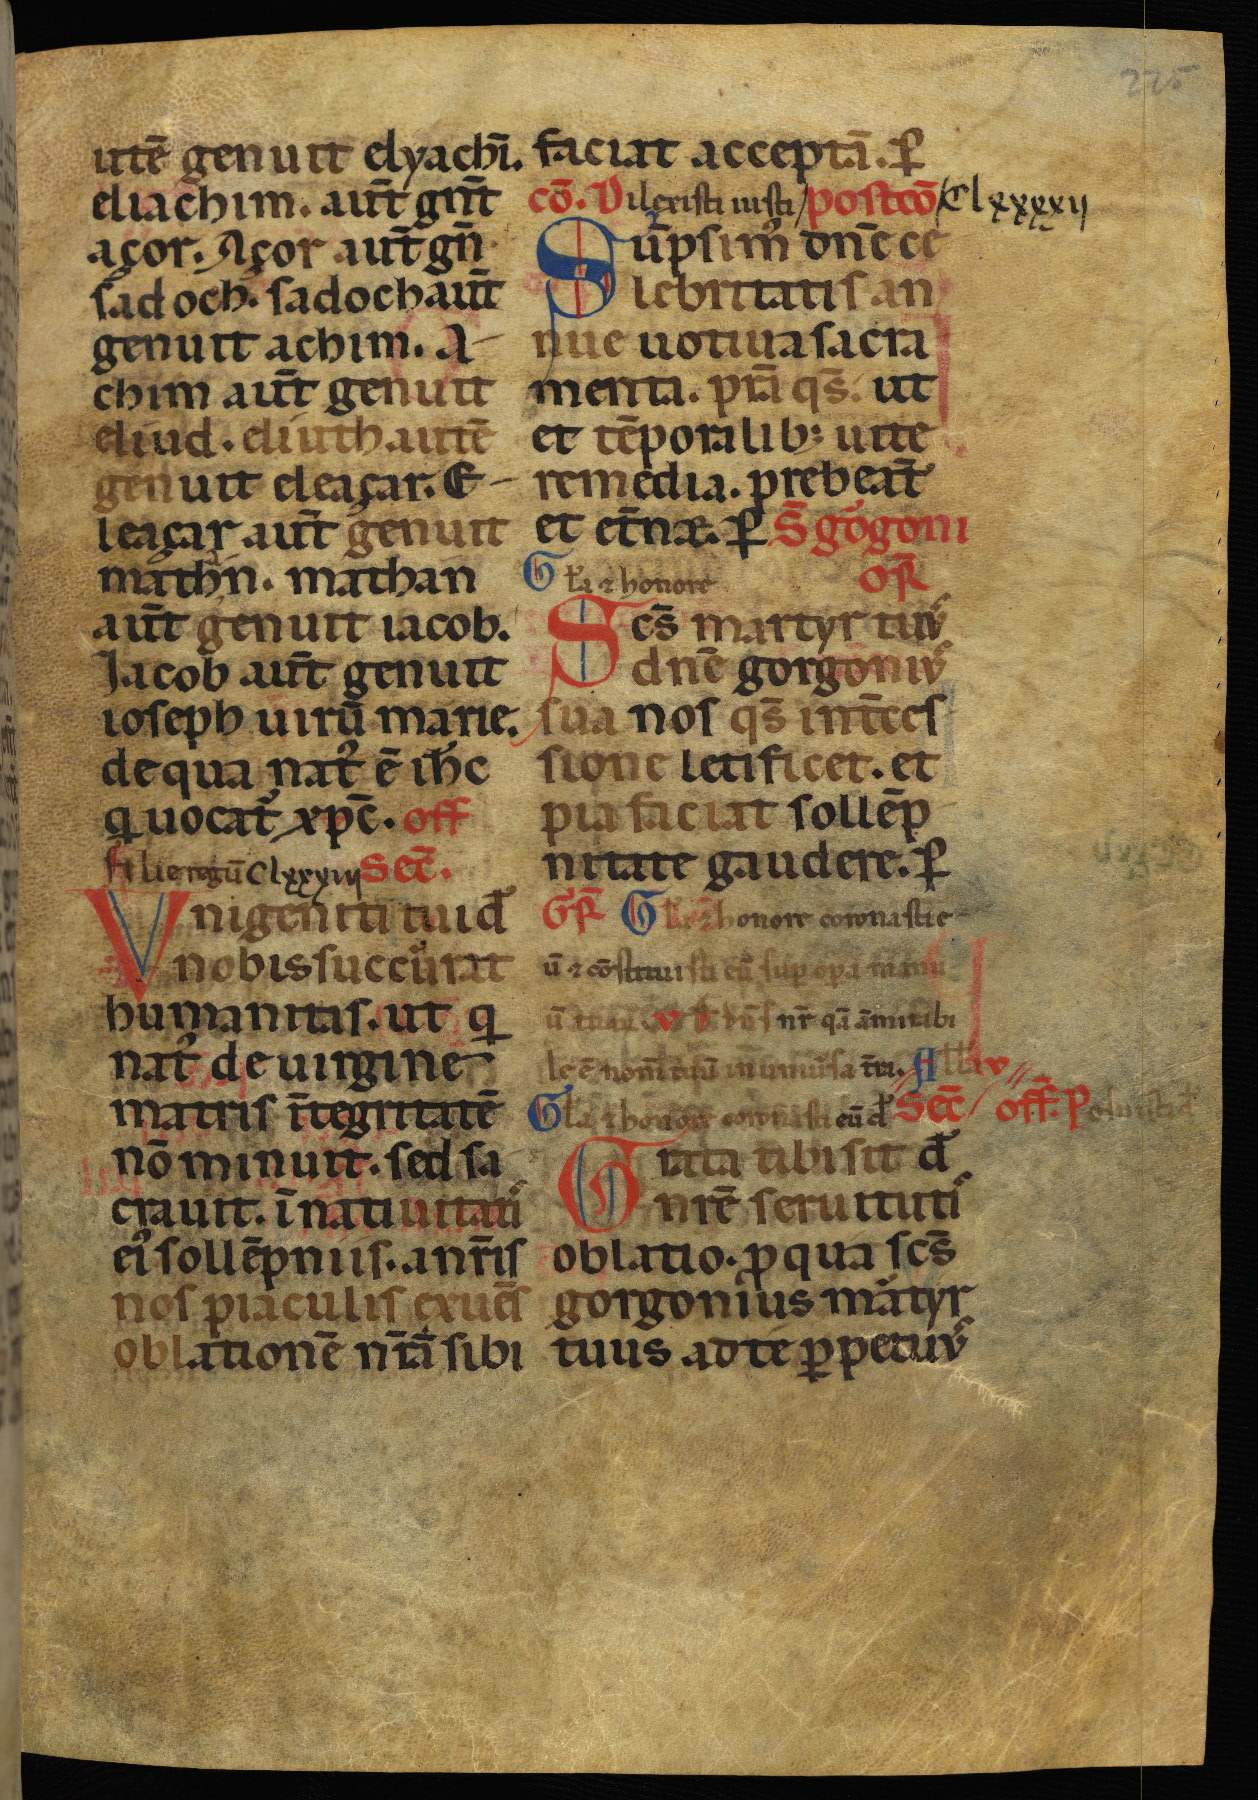 225
utē genuit elyachī.
eliachim. aūt gn̄it
açor. Açor aūt gn̄
sadoch. sadoch aūt
genuit achim. A-
chim aūt genuit
eliud. eliuth autē
genuit eleaçar. E-
leaçar aūt genuit
mathn. mathan
aūt genuit iacob.
Jacob aūt genuit
ioseph uirū marie.
de qua nat᷒ ē ih̄c
q uocat᷒ xp̄c. off
Filie regū Clxxxiii Sec̄.
Vnigeniti tui d̄
nobis succurrat
humanitas. ut q
nat᷒ de uirgine
matris ītegritatē
nō minuit. sed sa
crauit. ī natiuitatis
ei᷒ sollēpniis. a nr̄is
nos piaculis exuēs
oblationē nr̄ā sibi
faciat acceptā. P̄
cō. Dilexisti iusti / postcō / Clxxxxii
Sūpsim᷒ dn̄e ce
lebritatis an
nue uotiua sacra
menta. pr̄a qs̄. ut
et tēporalib; uite
remedia. prebeāt
et et̄næ. P̄ S̄ gorgoni
Gl̄a ⁊ honore or̄
Scs̄ martyr tuus
dn̄e gorgonius
sua nos qs̄ int̄ces
sione letificet. et
pia faciat sollēp
nitate gaudere. P̄
Gr̄ Gl̄a ⁊ honore coronasti e
ū ⁊ cōstituisti eū sup opa manu
ū tuaꝝ. v D dn̄s nr̄ qā āmirabi
le ē nom̄ tuū in uniūsa t̄ra. All̄a v
Gl̄a ⁊ honore coronasti eū d̄ Sec̄ / off. Posuisti d̄
Grata tibi sit d̄
nr̄ē seruitutis
oblatio. p qua scs̄
gorgonius martyr
tuus ad te ppetuus